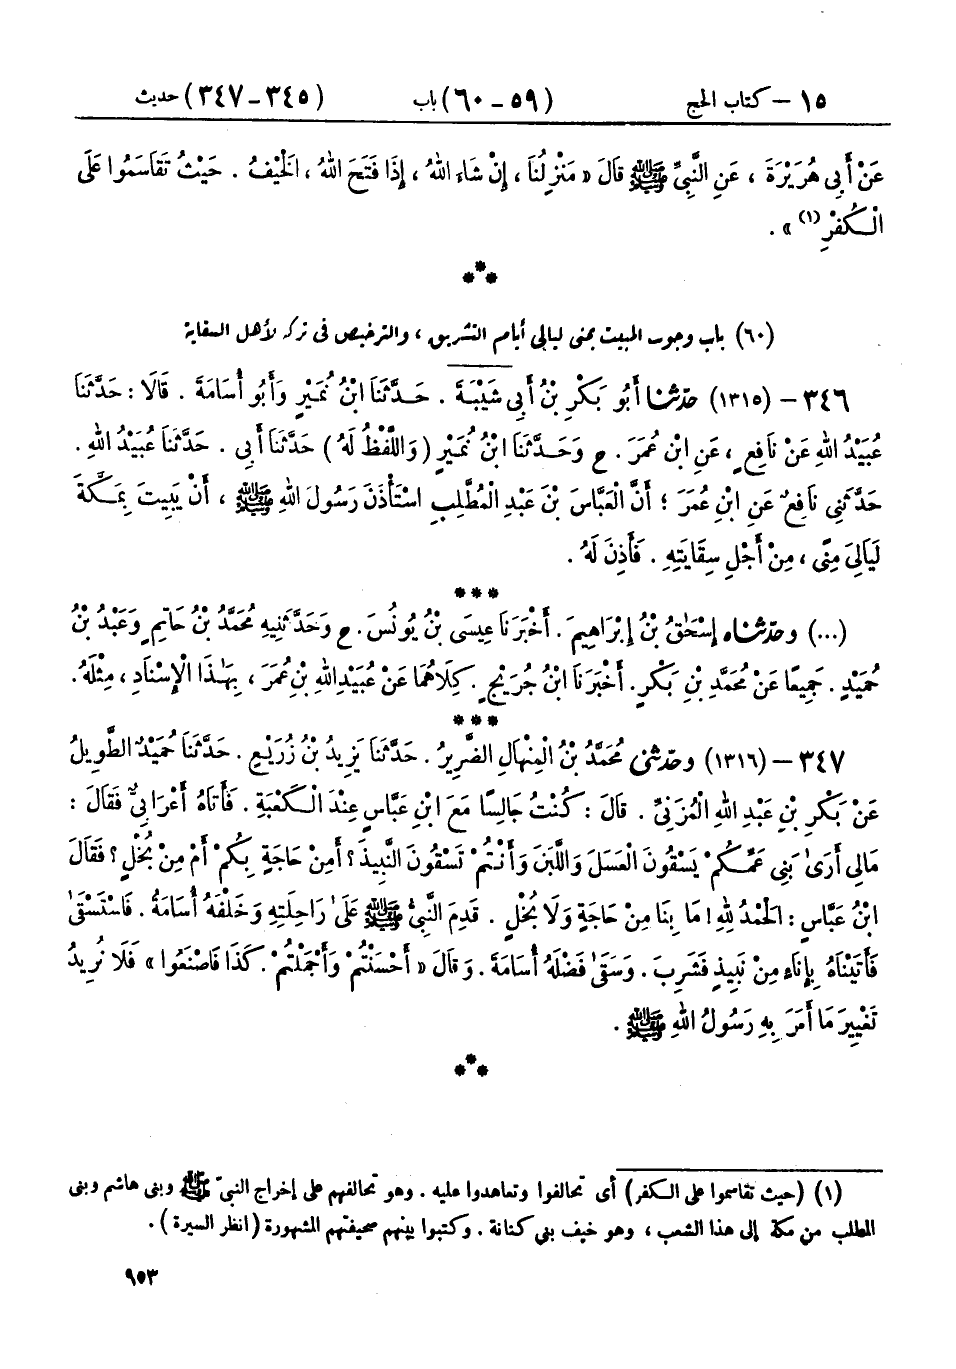 ١٥ – كتاب الحج (٥٩ - ٦٠) باب (٣٤٥ - ٣٤٧) حديث
عَنْ أَبِى هُرَيْرَةَ ، عَنِ النَّبِيِّ ﷺ قَالَ « مَنْزِلُنَا ، إِنْ شَاءَ اللهُ ، إِذَا فَتَحَ اللهُ ، الْخَيْفُ . حَيْثُ تَقَاسَمُوا عَلَى
الْكُفْرِ (١) » .
(٦٠) باب وجوب المبيت بمنى ليالى أيام التشريق ، والترخيص فى تركه لأهل السقاية
٣٤٦ – (١٣١٥) حدّثنا أَبُو بَكْرِ بْنُ أَبِى شَيْبَةَ . حَدَّثَنَا ابْنُ نُمَيْرٍ وَأَبُو أُسَامَةَ . قَالَا : حَدَّثَنَا
عُبَيْدُ اللهِ عَنْ نَافِعٍ ، عَنِ ابْنِ عُمَرَ . ح وَحَدَّثَنَا ابْنُ نُمَيْرٍ ( وَاللَّفْظُ لَهُ ) حَدَّثَنَا أَبِى . حَدَّثَنَا عُبَيْدُ اللهِ .
حَدَّثَنِى نَافِعٌ عَنِ ابْنِ عُمَرَ ؛ أَنَّ الْعَبَّاسَ بْنَ عَبْدِ الْمُطَّلِبِ اسْتَأْذَنَ رَسُولَ اللهِ ﷺ ، أَنْ يَبِيتَ بِمَكَّةَ
لَيَالِىَ مِنًى ، مِنْ أَجْلِ سِقَايَتِهِ . فَأَذِنَ لَهُ .
***
(...) وحدّثناه إِسْحَقُ بْنُ إِبْرَاهِيمَ . أَخْبَرَنَا عِيسَى بْنُ يُونُسَ . ح وَحَدَّثَنِيهِ مُحَمَّدُ بْنُ حَاتِمٍ وَعَبْدُ بْنُ
حُمَيْدٍ . جَمِيعًا عَنْ مُحَمَّدِ بْنِ بَكْرٍ . أَخْبَرَنَا ابْنُ جُرَيْجٍ . كِلَاهُمَا عَنْ عُبَيْدِ اللهِ بْنِ عُمَرَ ، بِهٰذَا الْإِسْنَادِ ، مِثْلَهُ .
***
٣٤٧ – (١٣١٦) وحدّثنى مُحَمَّدُ بْنُ الْمِنْهَالِ الضَّرِيرُ . حَدَّثَنَا يَزِيدُ بْنُ زُرَيْعٍ . حَدَّثَنَا حُمَيْدٌ الطَّوِيلُ
عَنْ بَكْرِ بْنِ عَبْدِ اللهِ الْمُزَنِيِّ . قَالَ : كُنْتُ جَالِسًا مَعَ ابْنِ عَبَّاسٍ عِنْدَ الْكَعْبَةِ . فَأَتَاهُ أَعْرَابِيٌّ فَقَالَ :
مَالِى أَرَىٰ بَنِى عَمِّكُمْ يَسْقُونَ الْعَسَلَ وَاللَّبَنَ وَأَنْتُمْ تَسْقُونَ النَّبِيذَ ؟ أَمِنْ حَاجَةٍ بِكُمْ أَمْ مِنْ بُخْلٍ ؟ فَقَالَ
ابْنُ عَبَّاسٍ : الْحَمْدُ لِلهِ ! مَا بِنَا مِنْ حَاجَةٍ وَلَا بُخْلٍ . قَدِمَ النَّبِيُّ ﷺ عَلَىٰ رَاحِلَتِهِ وَخَلْفَهُ أُسَامَةُ . فَاسْتَسْقَىٰ
فَأَتَيْنَاهُ بِإِنَاءٍ مِنْ نَبِيذٍ فَشَرِبَ . وَسَقَىٰ فَضْلَهُ أُسَامَةَ . وَقَالَ « أَحْسَنْتُمْ وَأَجْمَلْتُمْ . كَذَا فَاصْنَعُوا » فَلَا نُرِيدُ
تَغْيِيرَ مَا أَمَرَ بِهِ رَسُولُ اللهِ ﷺ .
(١) (حيث تقاسموا على الكفر) أى تحالفوا وتعاهدوا عليه . وهو تحالفهم على إخراج النبىّ ﷺ وبنى هاشم وبنى
المطلب من مكة إلى هذا الشعب ، وهو خيف بنى كنانة . وكتبوا بينهم صحيفتهم المشهورة (انظر السيرة) .
٩٥٣